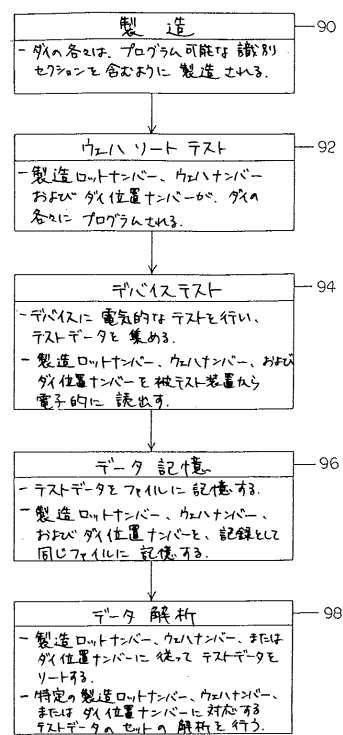 製造
90
- ダイの各々は、プログラム可能な識別
セクションを含むように製造される.
ウェハソートテスト
92
- 製造ロットナンバー、ウェハナンバー
およびダイ位置ナンバーが、ダイの
各々にプログラムされる.
デバイステスト
94
- デバイスに電気的なテストを行い、
テストデータを集める.
- 製造ロットナンバー、ウェハナンバー、および
ダイ位置ナンバーを被テスト装置から
電子的に読出す.
データ記憶
96
- テストデータをファイルに記憶する.
- 製造ロットナンバー、ウェハナンバー、
およびダイ位置ナンバーを、記録として
同じファイルに記憶する.
データ解析
98
- 製造ロットナンバー、ウェハナンバー、または
ダイ位置ナンバーに従ってテストデータを
ソートする.
- 特定の製造ロットナンバー、ウェハナンバー、
またはダイ位置ナンバーに対応する
テストデータのセットの解析を行う.